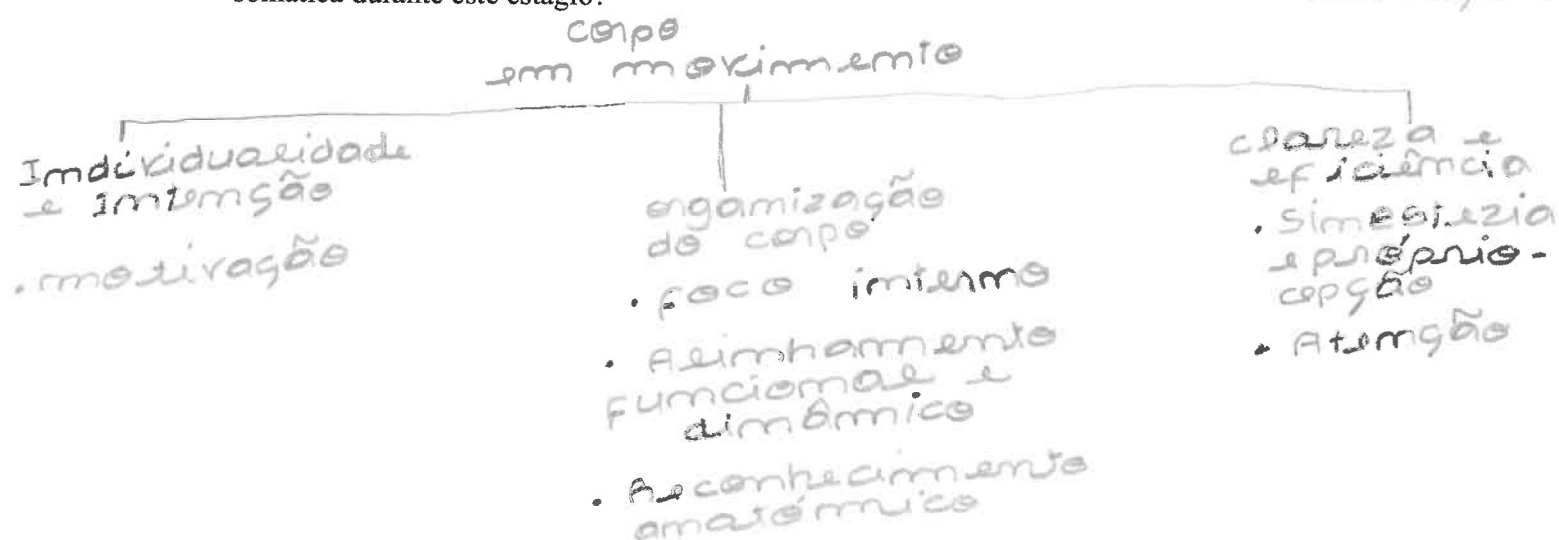 somática durante este estágio?
corpo
em movimento
Individualidade
e Intenção
. motivação
organização
do corpo
. Foco interno
. Alinhamento
Funcional e
dinâmico
. Reconhecimento
anatómico
clareza e
eficiência
. Sinestezia
e próprio-
cepção
. Atenção